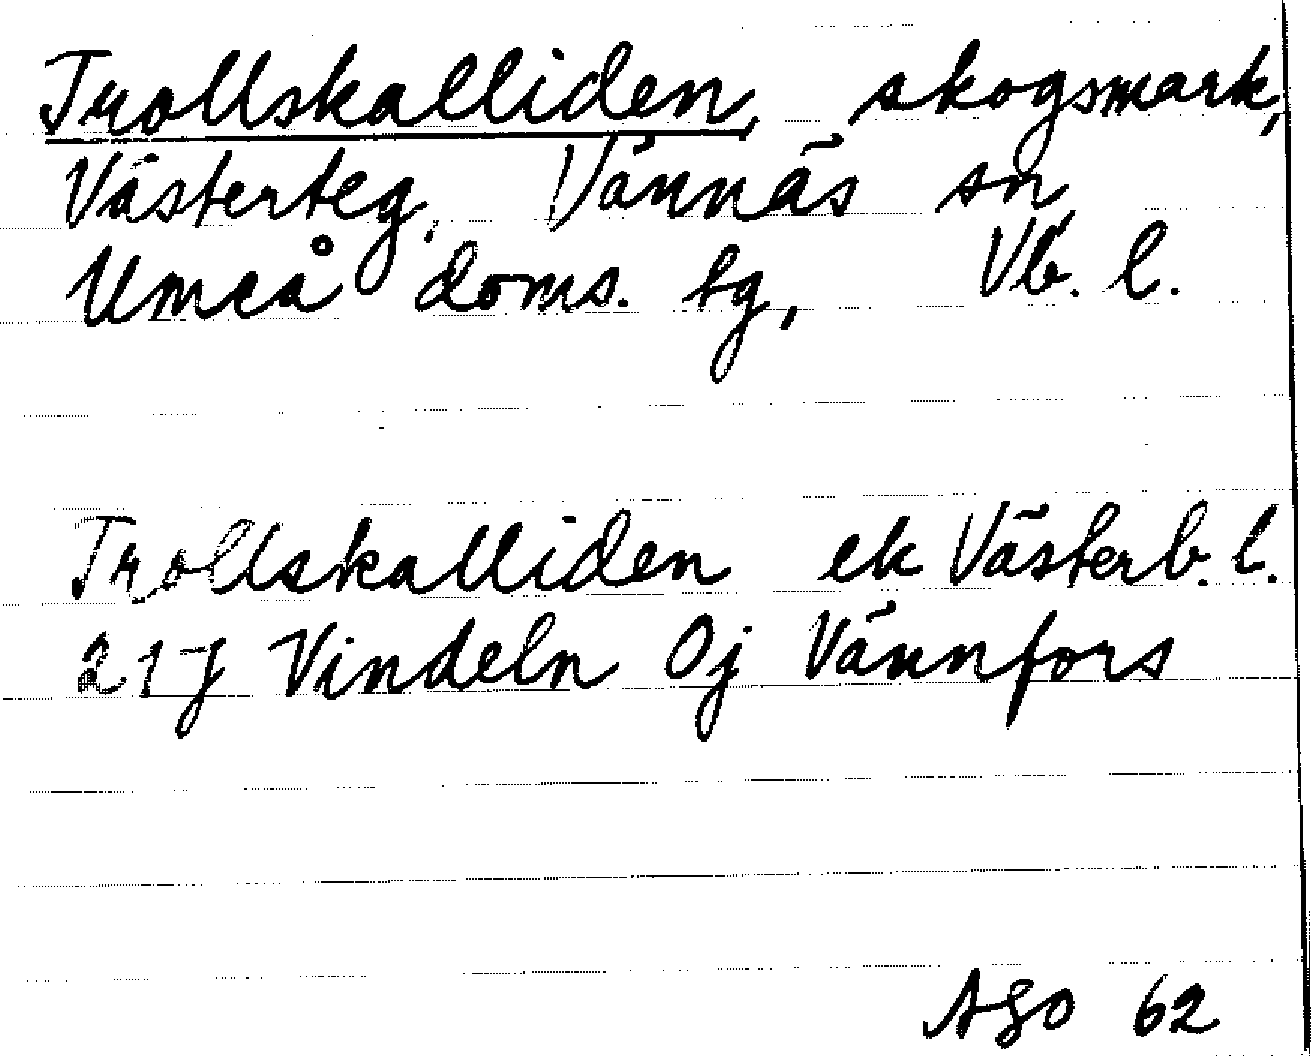 Trollskalliden, skogsmark,
Västerteg, Vännäs sn,
Umeå doms. tg, Vb. l.
Trollskalliden ek Västerb. l.
21J Vindeln 0j Vännfors
AGO 62